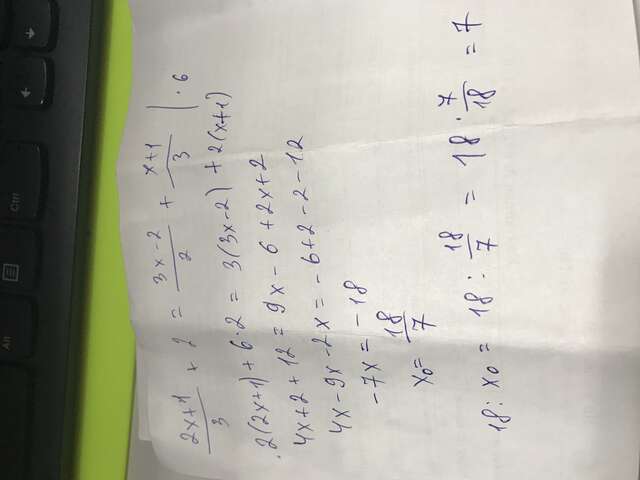 Alt
Ctrl
(2x+1)/3 + 2 = (3x-2)/2 + (x+1)/3 | · 6
2(2x+1) + 6·2 = 3(3x-2) + 2(x+1)
4x+2+12 = 9x-6+2x+2
4x-9x-2x = -6+2-2-12
-7x = -18
x₀ = 18/7
18 : x₀ = 18 : 18/7 = 18 · 7/18 = 7